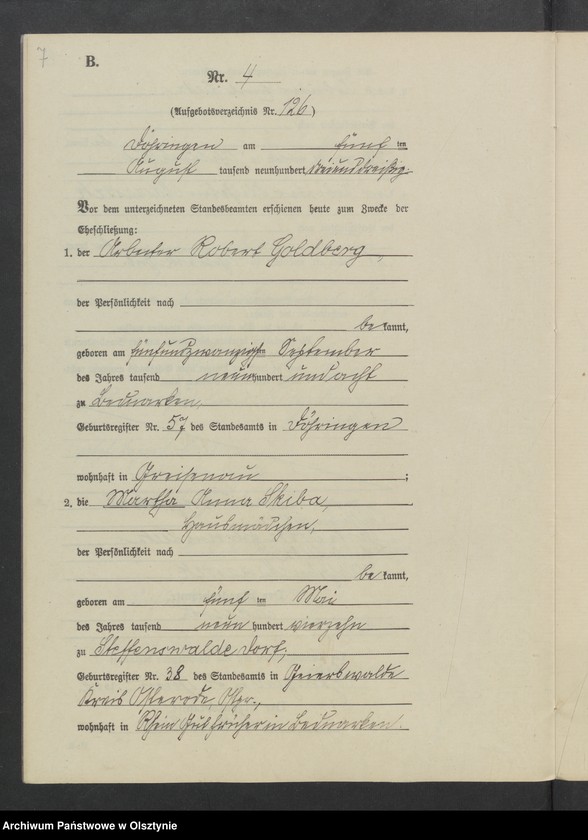 7
B.
Nr. 4
(Aufgebotsverzeichnis Nr. 126)
Döhringen am fünf ten
August tausend neunhundert dreiunddreißig.
Vor dem unterzeichneten Standesbeamten erschienen heute zum Zwecke der
Eheschließung:
1. der Arbeiter Robert Goldberg,
der Persönlichkeit nach
be kannt,
geboren am fünfundzwanzigsten September
des Jahres tausend neunhundert und acht
zu Bednarken,
Geburtsregister Nr. 57 des Standesamts in Döhringen
wohnhaft in Greisenau ;
2. die Martha Anna Skiba,
Hausmädchen,
der Persönlichkeit nach
be kannt,
geboren am fünf ten Mai
des Jahres tausend neun hundert vierzehn
zu Steffenswalde Dorf,
Geburtsregister Nr. 38 des Standesamts in Geierswalde
Kreis Osterode Ostpr.,
wohnhaft in Rhein Gut früher in Bednarken.
Archiwum Państwowe w Olsztynie